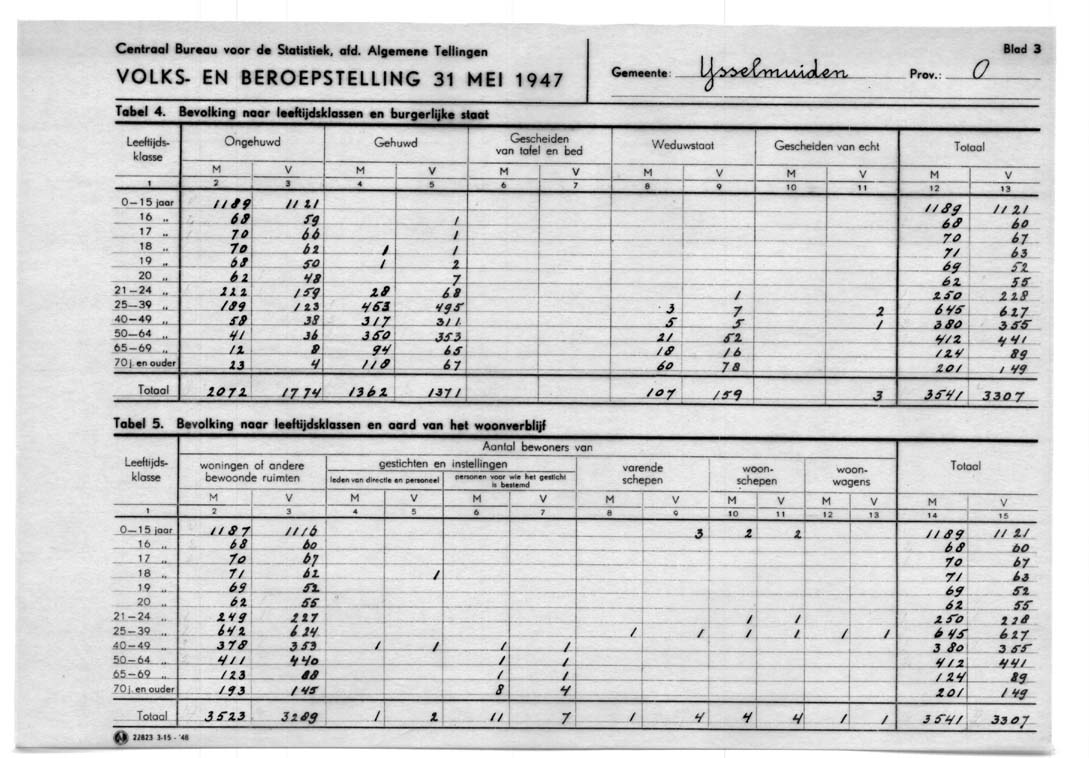 Centraal Bureau voor de Statistiek, afd. Algemene Tellingen
VOLKS- EN BEROEPSTELLING 31 MEI 1947
Gemeente: IJsselmuiden Prov.: O
Blad 3
Tabel 4. Bevolking naar leeftijdsklassen en burgerlijke staat
Leeftijds-klasse Ongehuwd Gehuwd Gescheiden van tafel en bed Weduwstaat Gescheiden van echt Totaal
M V M V M V M V M V M V
1 2 3 4 5 6 7 8 9 10 11 12 13
0—15 jaar 1189 1121 1189 1121
16 „ 68 59 1 68 60
17 „ 70 66 1 70 67
18 „ 70 62 1 1 71 63
19 „ 68 50 1 2 69 52
20 „ 62 48 7 62 55
21—24 „ 222 159 28 68 1 250 228
25—39 „ 189 123 453 495 3 7 2 645 627
40—49 „ 58 38 317 311 5 5 1 380 355
50—64 „ 41 36 350 353 21 52 412 441
65—69 „ 12 8 94 65 18 16 124 89
70 j. en ouder 23 4 118 67 60 78 201 149
Totaal 2072 1774 1362 1371 107 159 3 3541 3307
Tabel 5. Bevolking naar leeftijdsklassen en aard van het woonverblijf
Aantal bewoners van
Leeftijds-klasse woningen of andere bewoonde ruimten gestichten en instellingen varende schepen woon-schepen woon-wagens Totaal
leden van directie en personeel personen voor wie het gesticht is bestemd
M V M V M V M V M V M V M V
1 2 3 4 5 6 7 8 9 10 11 12 13 14 15
0—15 jaar 1187 1116 3 2 2 1189 1121
16 „ 68 60 68 60
17 „ 70 67 70 67
18 „ 71 62 1 71 63
19 „ 69 52 69 52
20 „ 62 55 62 55
21—24 „ 249 227 1 1 250 228
25—39 „ 642 624 1 1 1 1 1 1 645 627
40—49 „ 378 353 1 1 1 1 380 355
50—64 „ 411 440 1 1 412 441
65—69 „ 123 88 1 1 124 89
70 j. en ouder 193 145 8 4 201 149
Totaal 3523 3289 1 2 11 7 1 4 4 4 1 1 3541 3307
22823 3-15 - '48